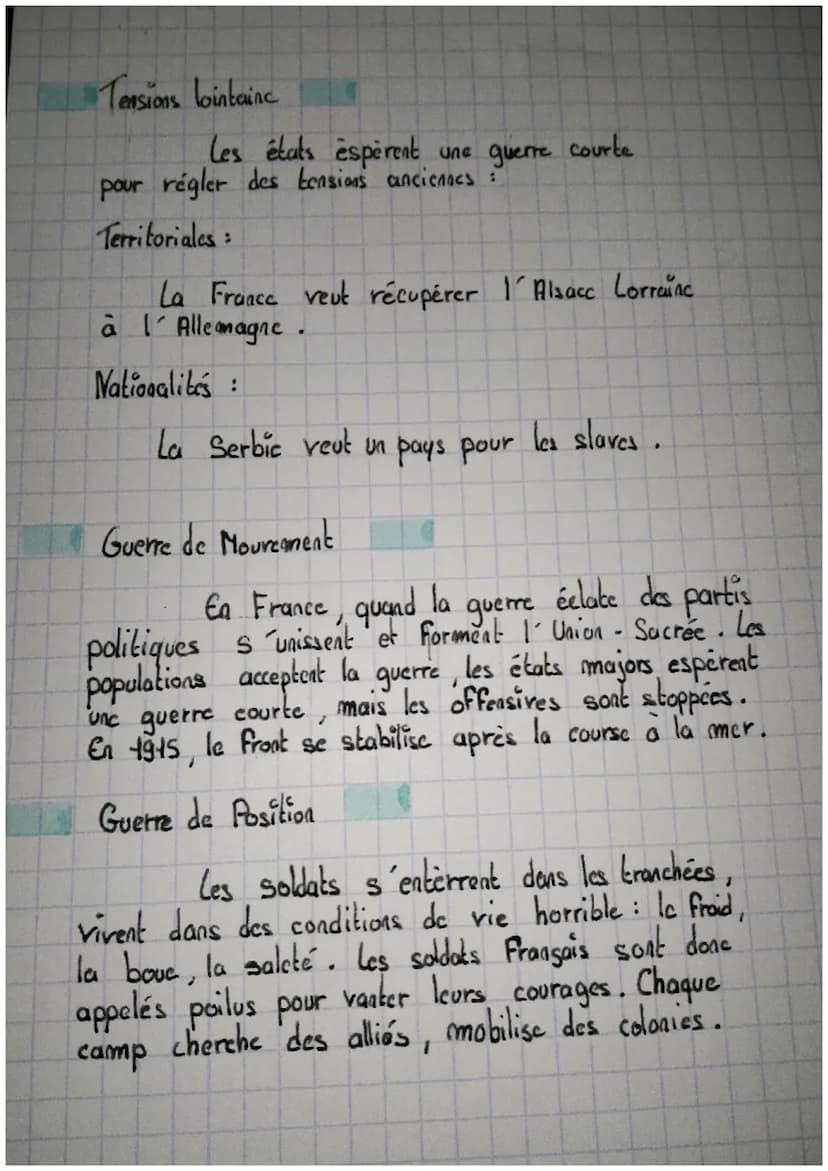 Tensions lointaine
Les états éspèrent une guerre courte
pour régler des tensions anciennes :
Territoriales :
La France veut récupérer l'Alsace Lorraine
à l'Allemagne .
Nationalités :
La Serbie veut un pays pour les slaves .
Guerre de Mouvement
En France, quand la guerre éclate des partis
politiques s'unissent et forment l'Union - Sacrée . Les
populations acceptent la guerre, les états majors espèrent
une guerre courte, mais les offensives sont stoppées .
En 1915, le front se stabilise après la course à la mer.
Guerre de Position
Les soldats s'entèrrent dans les tranchées,
vivent dans des conditions de vie horrible : le froid,
la boue, la saleté . Les soldats Français sont donc
appelés poilus pour vanter leurs courages . Chaque
camp cherche des alliés, mobilise des colonies .